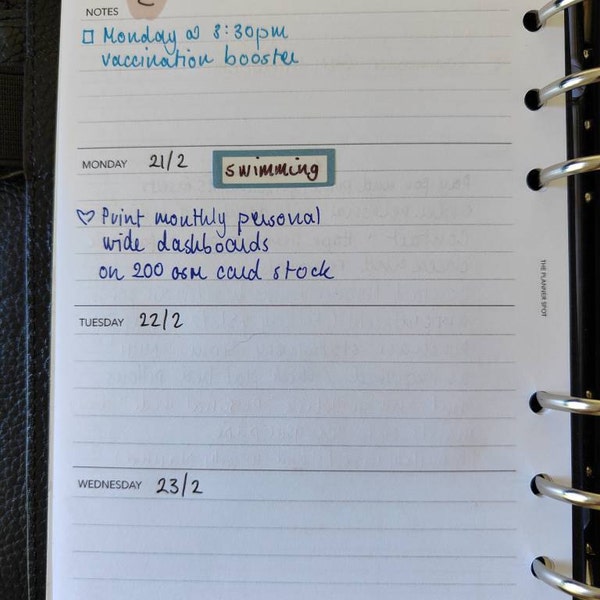 NOTES
□ Monday @ 8:30pm
vaccination booster
MONDAY 21/2 swimming
♡ Print monthly personal
wide dashboards
on 200 GSM card stock
THE PLANNER SPOT
TUESDAY 22/2
WEDNESDAY 23/2